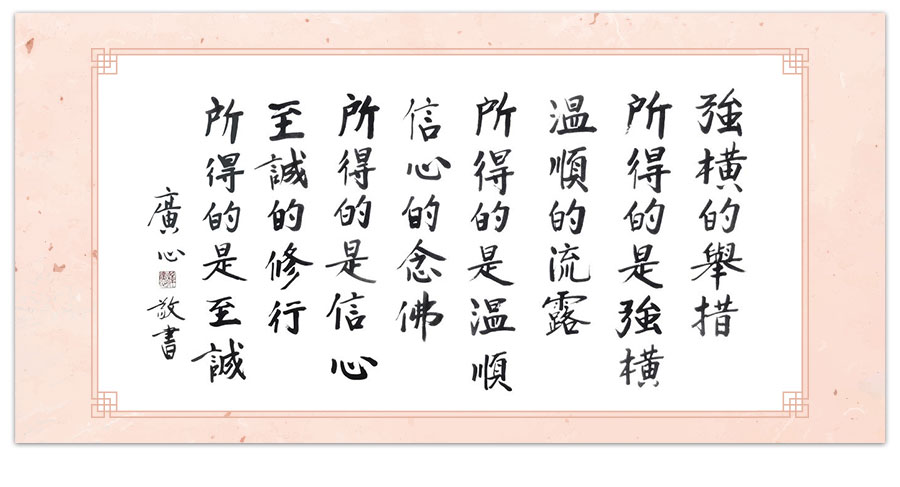 強橫的舉措
所得的是強橫
溫順的流露
所得的是溫順
信心的念佛
所得的是信心
至誠的修行
所得的是至誠
廣心 敬書